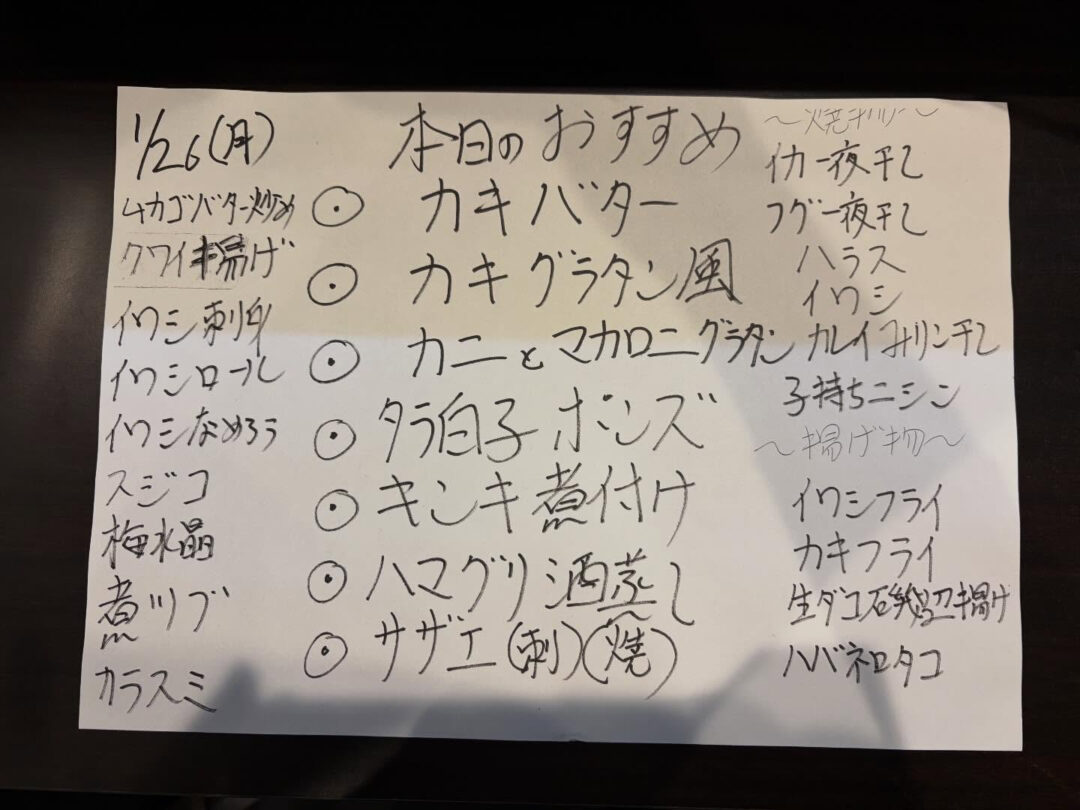 1/26(月)
ムカゴバター炒め
クワイ揚げ
イワシ刺身
イワシロール
イワシなめろう
スジコ
梅水晶
煮ツブ
カラスミ
本日のおすすめ
⦿ カキバター
⦿ カキグラタン風
⦿ カニとマカロニグラタン
⦿ タラ白子ポンズ
⦿ キンキ煮付け
⦿ ハマグリ酒蒸し
⦿ サザエ(刺)(焼)
イカ一夜干し
フグ一夜干し
ハラス
イワシ
カレイみりん干し
子持ちニシン
〜揚げ物〜
イワシフライ
カキフライ
生ダコ磯辺揚げ
ハバネロタコ